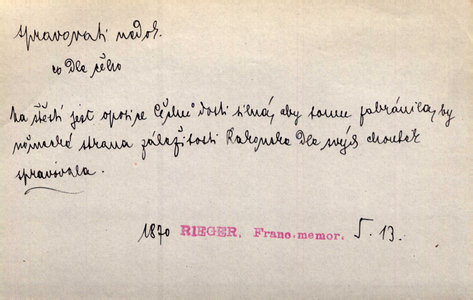 spravovati nedok.
co dle čeho
na štěstí jest oposice Čechů dosti silná, aby tomu zabránila, by
německá strana záležitosti Rakouska dle svých choutek
spravovala.
1870 RIEGER. Franc. memor. S. 13.